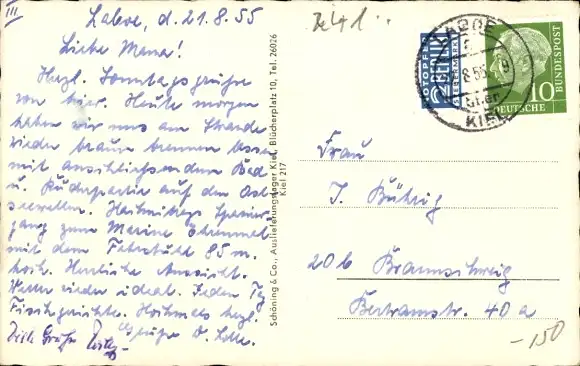 III
Laboe, d. 21.8.55
Liebe Mama!
Herzl. Sonntagsgrüße
von hier. Heute morgen
haben wir uns am Strande
wieder braun brennen lassen
mit anschließendem Bad
u. Ruderpartie auf den Ost-
seewellen. Nachmittags Spazier-
gang zum Marine Ehrenmal
mit dem Fahrstuhl 85 m.
hoch. Herrliche Aussicht.
Wetter wieder ideal. Jeden Tag
Fischgerichte. Nochmals herzl.
Grüße D. Lotte.
Viele Grüße
Schöning & Co., Auslieferungslager Kiel, Blücherplatz 10, Tel. 26026
Kiel 217
NOTOPFER
2 BERLIN
STEUERMARKE
LABOE
KIEL
DEUTSCHE
BUNDESPOST
10
Frau
J. Bührig
20b Braunschweig
Bertramstr. 40a
-150